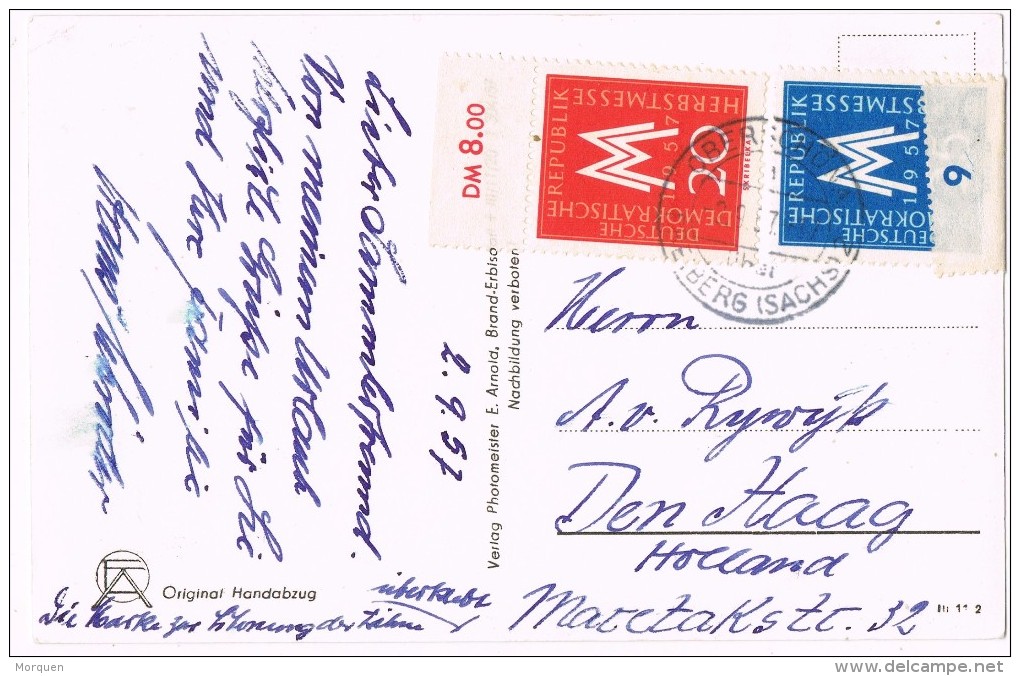 2. 9. 57
Lieber Sammelfreund.
Von meinem Urlaub
Grüße für Sie
und Ihre Familie
Original Handabzug
Die Marke zur Schonung der Zähne
überklebt
Verlag Photomeister E. Arnold, Brand-Erbiso
Nachbildung verboten
DM 8.00
DEUTSCHE
DEMOKRATISCHE
REPUBLIK
HERBSTMESSE
1957
20
SKRIBELKA
EUTSCHE
OKRATISCHE
REPUBLIK
STMESSE
1957
9
BERG (SACHS)
Herrn
A. v. Rijwijk
Den Haag
Holland
Maretakstr. 32
III 11 2
Morquen
delcampe.net